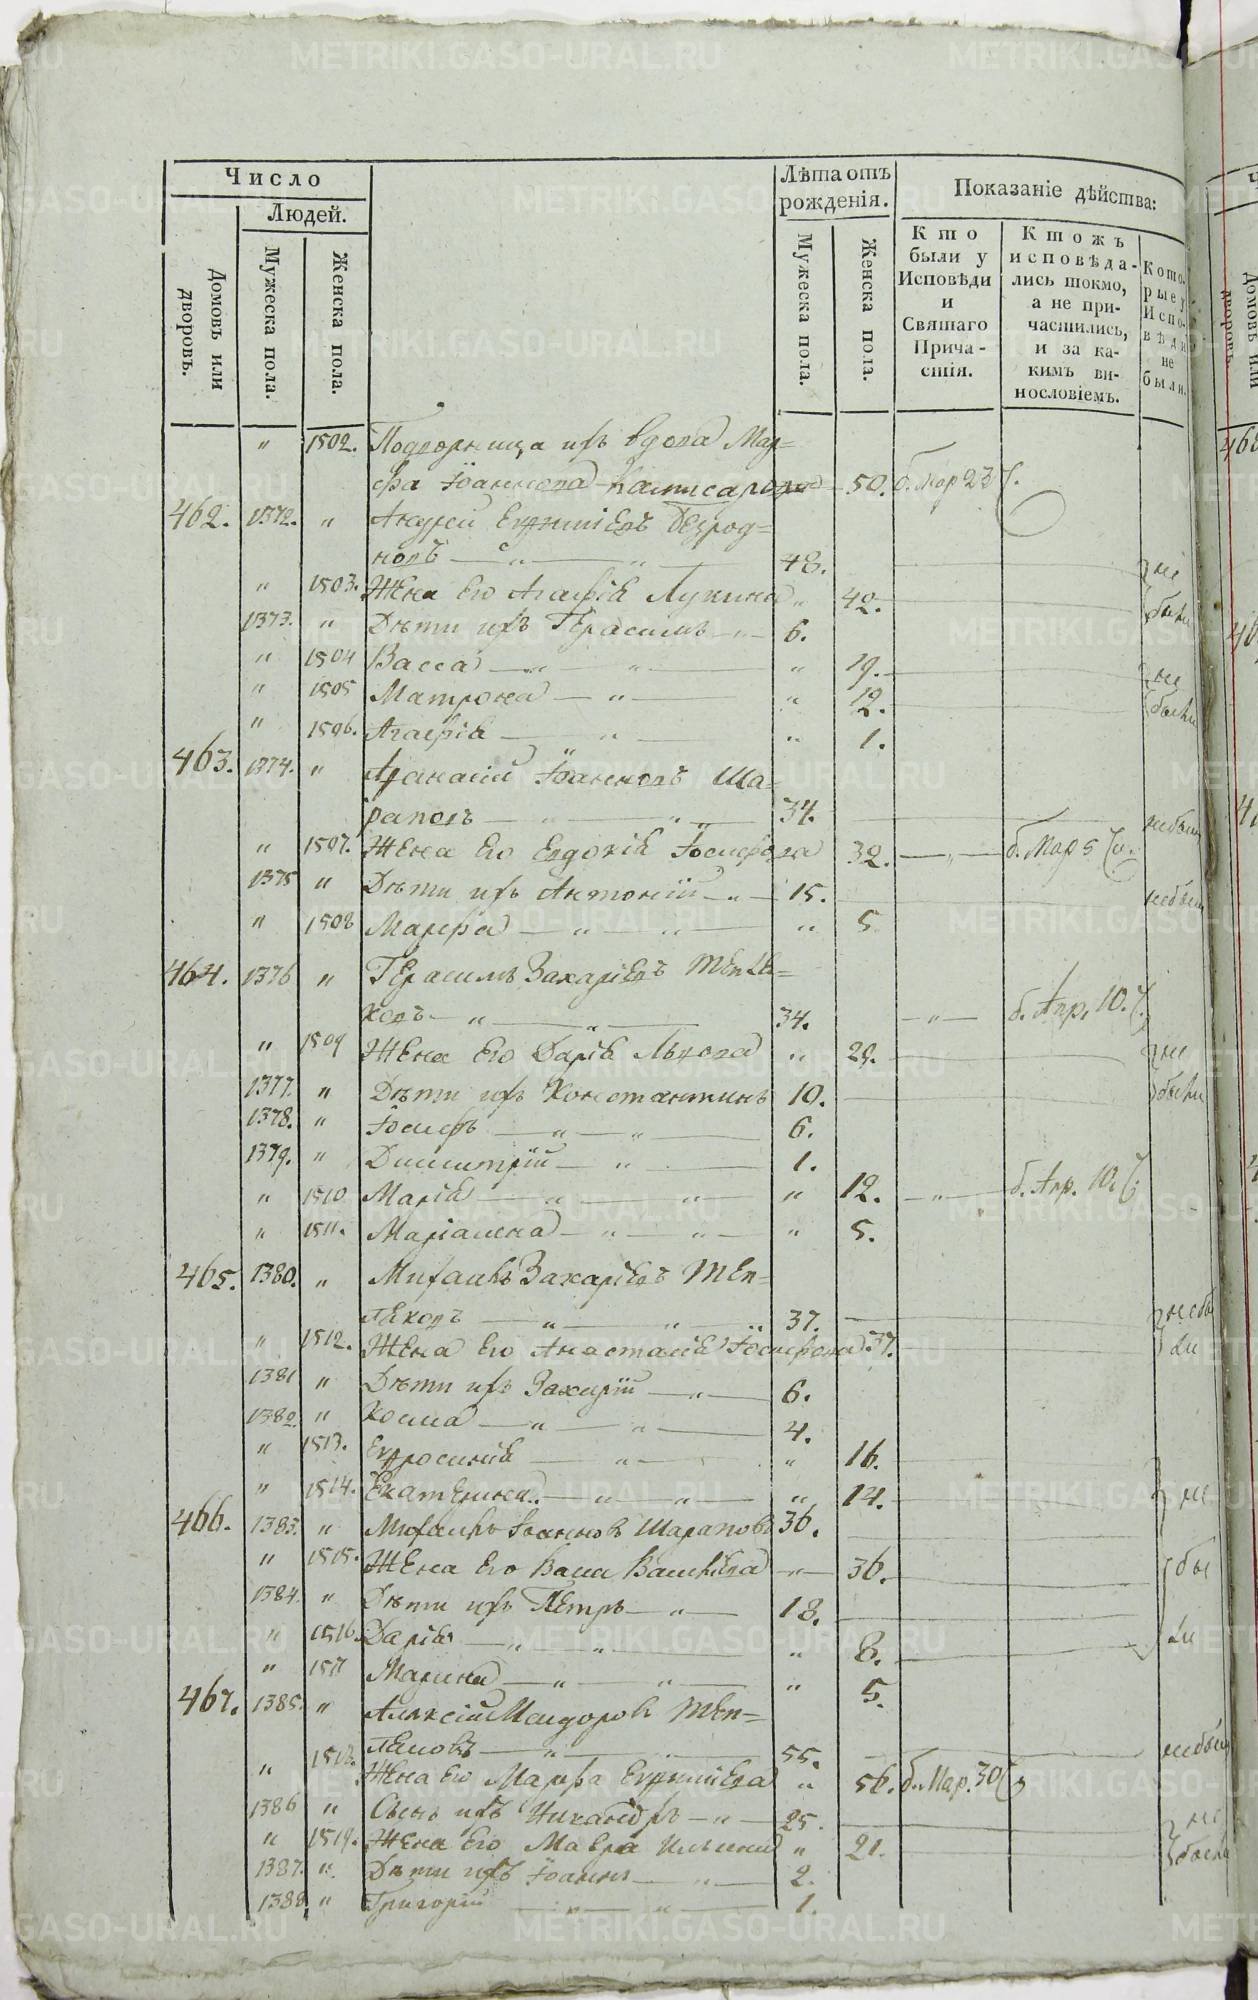 Число
Людей.
Домовъ или дворовъ.
Мужеска пола.
Женска пола.
Лѣта отъ рожденія.
Мужеска пола.
Женска пола.
Показаніе дѣйства:
Кто были у Исповѣди и Святаго Причастія.
Ктожъ исповѣдались токмо, а не причастились, и за какимъ винословіемъ.
Которые у Исповѣди не были.
" 1502. Подворница ихъ вдова Мар=
фа Іоаннова 50. б. Мар 23 ч.
462. 1372. " Андрей Безрод=
новъ — " — " — 48. не
" 1503. Жена его Агафія Лукина " 42. были
1373. " Дѣти ихъ Герасимъ — " — 6.
" 1504 Васса — " — " — " 19. не
" 1505 Матрона — " — " 12. были
" 1506. Агафія — " — " 1.
463. 1374. " Афанасій Іоанновъ Ша=
раповъ — " — " — 34. небыл
" 1507. Жена его Евдокія Іосифова 32. — " — б. Мар 5 ч.
1375 " Дѣти ихъ Антоній — " — 15. небыл
" 1508 Марфа — " — " — " 5
464. 1376 " Герасимъ Захаріевъ Тепля=
ковъ — " — " — 34. — " — б. Апр. 10. ч.
" 1509 Жена его Дарія Львова " 29. не
1377. " Дѣти ихъ Константинъ 10. были
1378. " Іосифъ — " — " — 6.
1379. " Димитрій — " — 1.
" 1510 Марія — " — " — " 12. — " — б. Апр. 10. ч.
" 1511. Маріамна — " — " — " 5.
465. 1380. " Михаилъ Захаріевъ Теп=
ляковъ — " — " — " 37. небы
" 1512. Жена его Анастасія Іосифова 37. ли
1381 " Дѣти ихъ Захарій — " — 6.
1382. " Косма — " — " — 4.
" 1513. Евфросинія — " — " 16.
" 1514. Екатерина — " — " — " 14. не
466. 1383. " Михаилъ Іоанновъ Шараповъ 36.
" 1515. Жена его Васса Васильева — " — 36. бы
1384. " Дѣти ихъ Петръ — " — 18.
" 1516. Дарія — " — " — " 8. ли
" 1517 Марина — " — " — " 5.
467. 1385. " Алексій Исидоровъ Теп=
ляковъ — " — " — 55. небыл
" 1518. Жена его Марфа " 56. б. Мар. 30 ч.
1386 " Сынъ ихъ Никандръ — " — 25. не
" 1519. Жена его Мавра " 21. были
1387. " Дѣти ихъ Іоаннъ — " — 2.
1388. " Григорій — " — " — 1.
METRIKI.GASO-URAL.RU